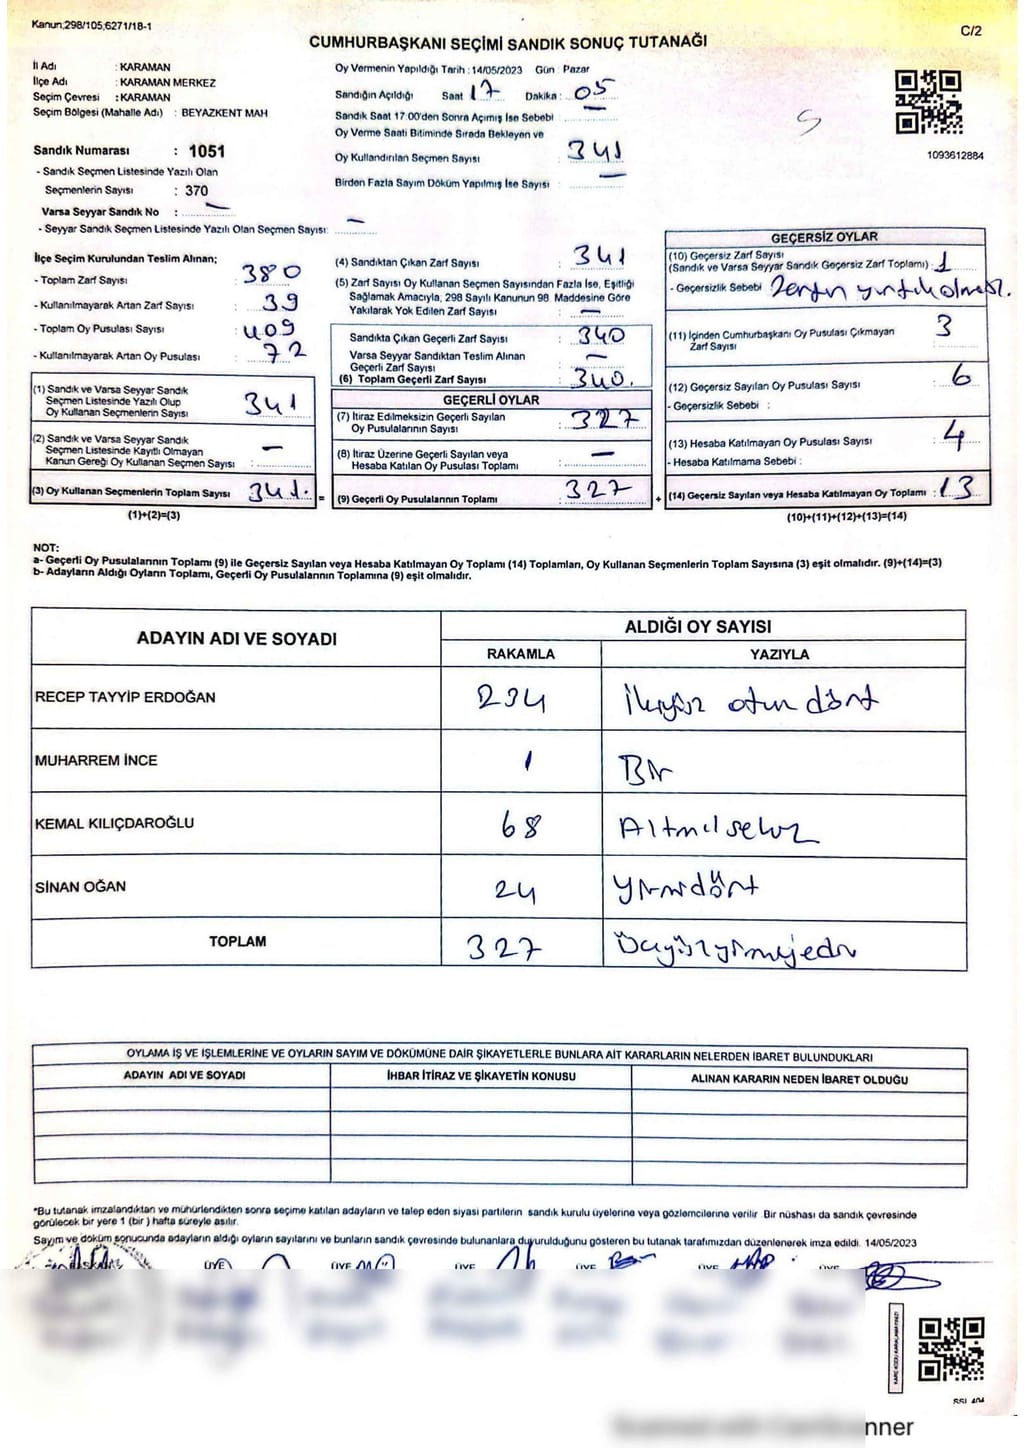 Kanun;298/105,6271/18-1
C/2
CUMHURBAŞKANI SEÇİMİ SANDIK SONUÇ TUTANAĞI
İl Adı : KARAMAN
İlçe Adı : KARAMAN MERKEZ
Seçim Çevresi : KARAMAN
Seçim Bölgesi (Mahalle Adı) : BEYAZKENT MAH
Sandık Numarası : 1051
- Sandık Seçmen Listesinde Yazılı Olan
Seçmenlerin Sayısı : 370
Varsa Seyyar Sandık No : —
- Seyyar Sandık Seçmen Listesinde Yazılı Olan Seçmen Sayısı: —
Oy Vermenin Yapıldığı Tarih : 14/05/2023 Gün : Pazar
Sandığın Açıldığı Saat 17 Dakika : 05
Sandık Saat 17:00'den Sonra Açımış İse Sebebi : —
Oy Verme Saati Bitiminde Sırada Bekleyen ve
Oy Kullandırılan Seçmen Sayısı : 341
Birden Fazla Sayım Döküm Yapılmış İse Sayısı : —
1093612884
İlçe Seçim Kurulundan Teslim Alınan;
- Toplam Zarf Sayısı : 380
- Kullanılmayarak Artan Zarf Sayısı : 39
- Toplam Oy Pusulası Sayısı : 409
- Kullanılmayarak Artan Oy Pusulası : 72
(1) Sandık ve Varsa Seyyar Sandık
Seçmen Listesinde Yazılı Olup
Oy Kullanan Seçmenlerin Sayısı : 341
(2) Sandık ve Varsa Seyyar Sandık
Seçmen Listesinde Kayıtlı Olmayan
Kanun Gereği Oy Kullanan Seçmen Sayısı : —
(3) Oy Kullanan Seçmenlerin Toplam Sayısı : 341. =
(1)+(2)=(3)
(4) Sandıktan Çıkan Zarf Sayısı : 341
(5) Zarf Sayısı Oy Kullanan Seçmen Sayısından Fazla İse, Eşitliği
Sağlamak Amacıyla, 298 Sayılı Kanunun 98 Maddesine Göre
Yakılarak Yok Edilen Zarf Sayısı : —
Sandıkta Çıkan Geçerli Zarf Sayısı : 340
Varsa Seyyar Sandıktan Teslim Alınan
Geçerli Zarf Sayısı : —
(6) Toplam Geçerli Zarf Sayısı : 340.
GEÇERLİ OYLAR
(7) İtiraz Edilmeksizin Geçerli Sayılan
Oy Pusulalarının Sayısı : 327
(8) İtiraz Üzerine Geçerli Sayılan veya
Hesaba Katılan Oy Pusulası Toplamı : —
(9) Geçerli Oy Pusulalarının Toplamı : 327 +
GEÇERSİZ OYLAR
(10) Geçersiz Zarf Sayısı
(Sandık ve Varsa Seyyar Sandık Geçersiz Zarf Toplamı) : 1
- Geçersizlik Sebebi : Zarfın yırtık olması.
(11) İçinden Cumhurbaşkanı Oy Pusulası Çıkmayan
Zarf Sayısı : 3
(12) Geçersiz Sayılan Oy Pusulası Sayısı : 6
- Geçersizlik Sebebi :
(13) Hesaba Katılmayan Oy Pusulası Sayısı : 4
- Hesaba Katılmama Sebebi :
(14) Geçersiz Sayılan veya Hesaba Katılmayan Oy Toplamı : 13
(10)+(11)+(12)+(13)=(14)
NOT:
a- Geçerli Oy Pusulalarının Toplamı (9) ile Geçersiz Sayılan veya Hesaba Katılmayan Oy Toplamı (14) Toplamları, Oy Kullanan Seçmenlerin Toplam Sayısına (3) eşit olmalıdır. (9)+(14)=(3)
b- Adayların Aldığı Oyların Toplamı, Geçerli Oy Pusulalarının Toplamına (9) eşit olmalıdır.
ADAYIN ADI VE SOYADI ALDIĞI OY SAYISI
RAKAMLA YAZIYLA
RECEP TAYYİP ERDOĞAN 234 İkiyüz otuz dört
MUHARREM İNCE 1 Bir
KEMAL KILIÇDAROĞLU 68 Altmışsekiz
SİNAN OĞAN 24 Yirmidört
TOPLAM 327 Üçyüzyirmiyedi
OYLAMA İŞ VE İŞLEMLERİNE VE OYLARIN SAYIM VE DÖKÜMÜNE DAİR ŞİKAYETLERLE BUNLARA AİT KARARLARIN NELERDEN İBARET BULUNDUKLARI
ADAYIN ADI VE SOYADI İHBAR İTİRAZ VE ŞİKAYETİN KONUSU ALINAN KARARIN NEDEN İBARET OLDUĞU
*Bu tutanak imzalandıktan ve mühürlendikten sonra seçime katılan adayların ve talep eden siyasi partilerin sandık kurulu üyelerine veya gözlemcilerine verilir .Bir nüshası da sandık çevresinde
görülecek bir yere 1 (bir ) hafta süreyle asılır.
Sayım ve döküm sonucunda adayların aldığı oyların sayılarını ve bunların sandık çevresinde bulunanlara duyurulduğunu gösteren bu tutanak tarafımızdan düzenlenerek imza edildi. 14/05/2023
BAŞKAN ÜYE ÜYE ÜYE ÜYE ÜYE ÜYE
Scanned with CamScanner